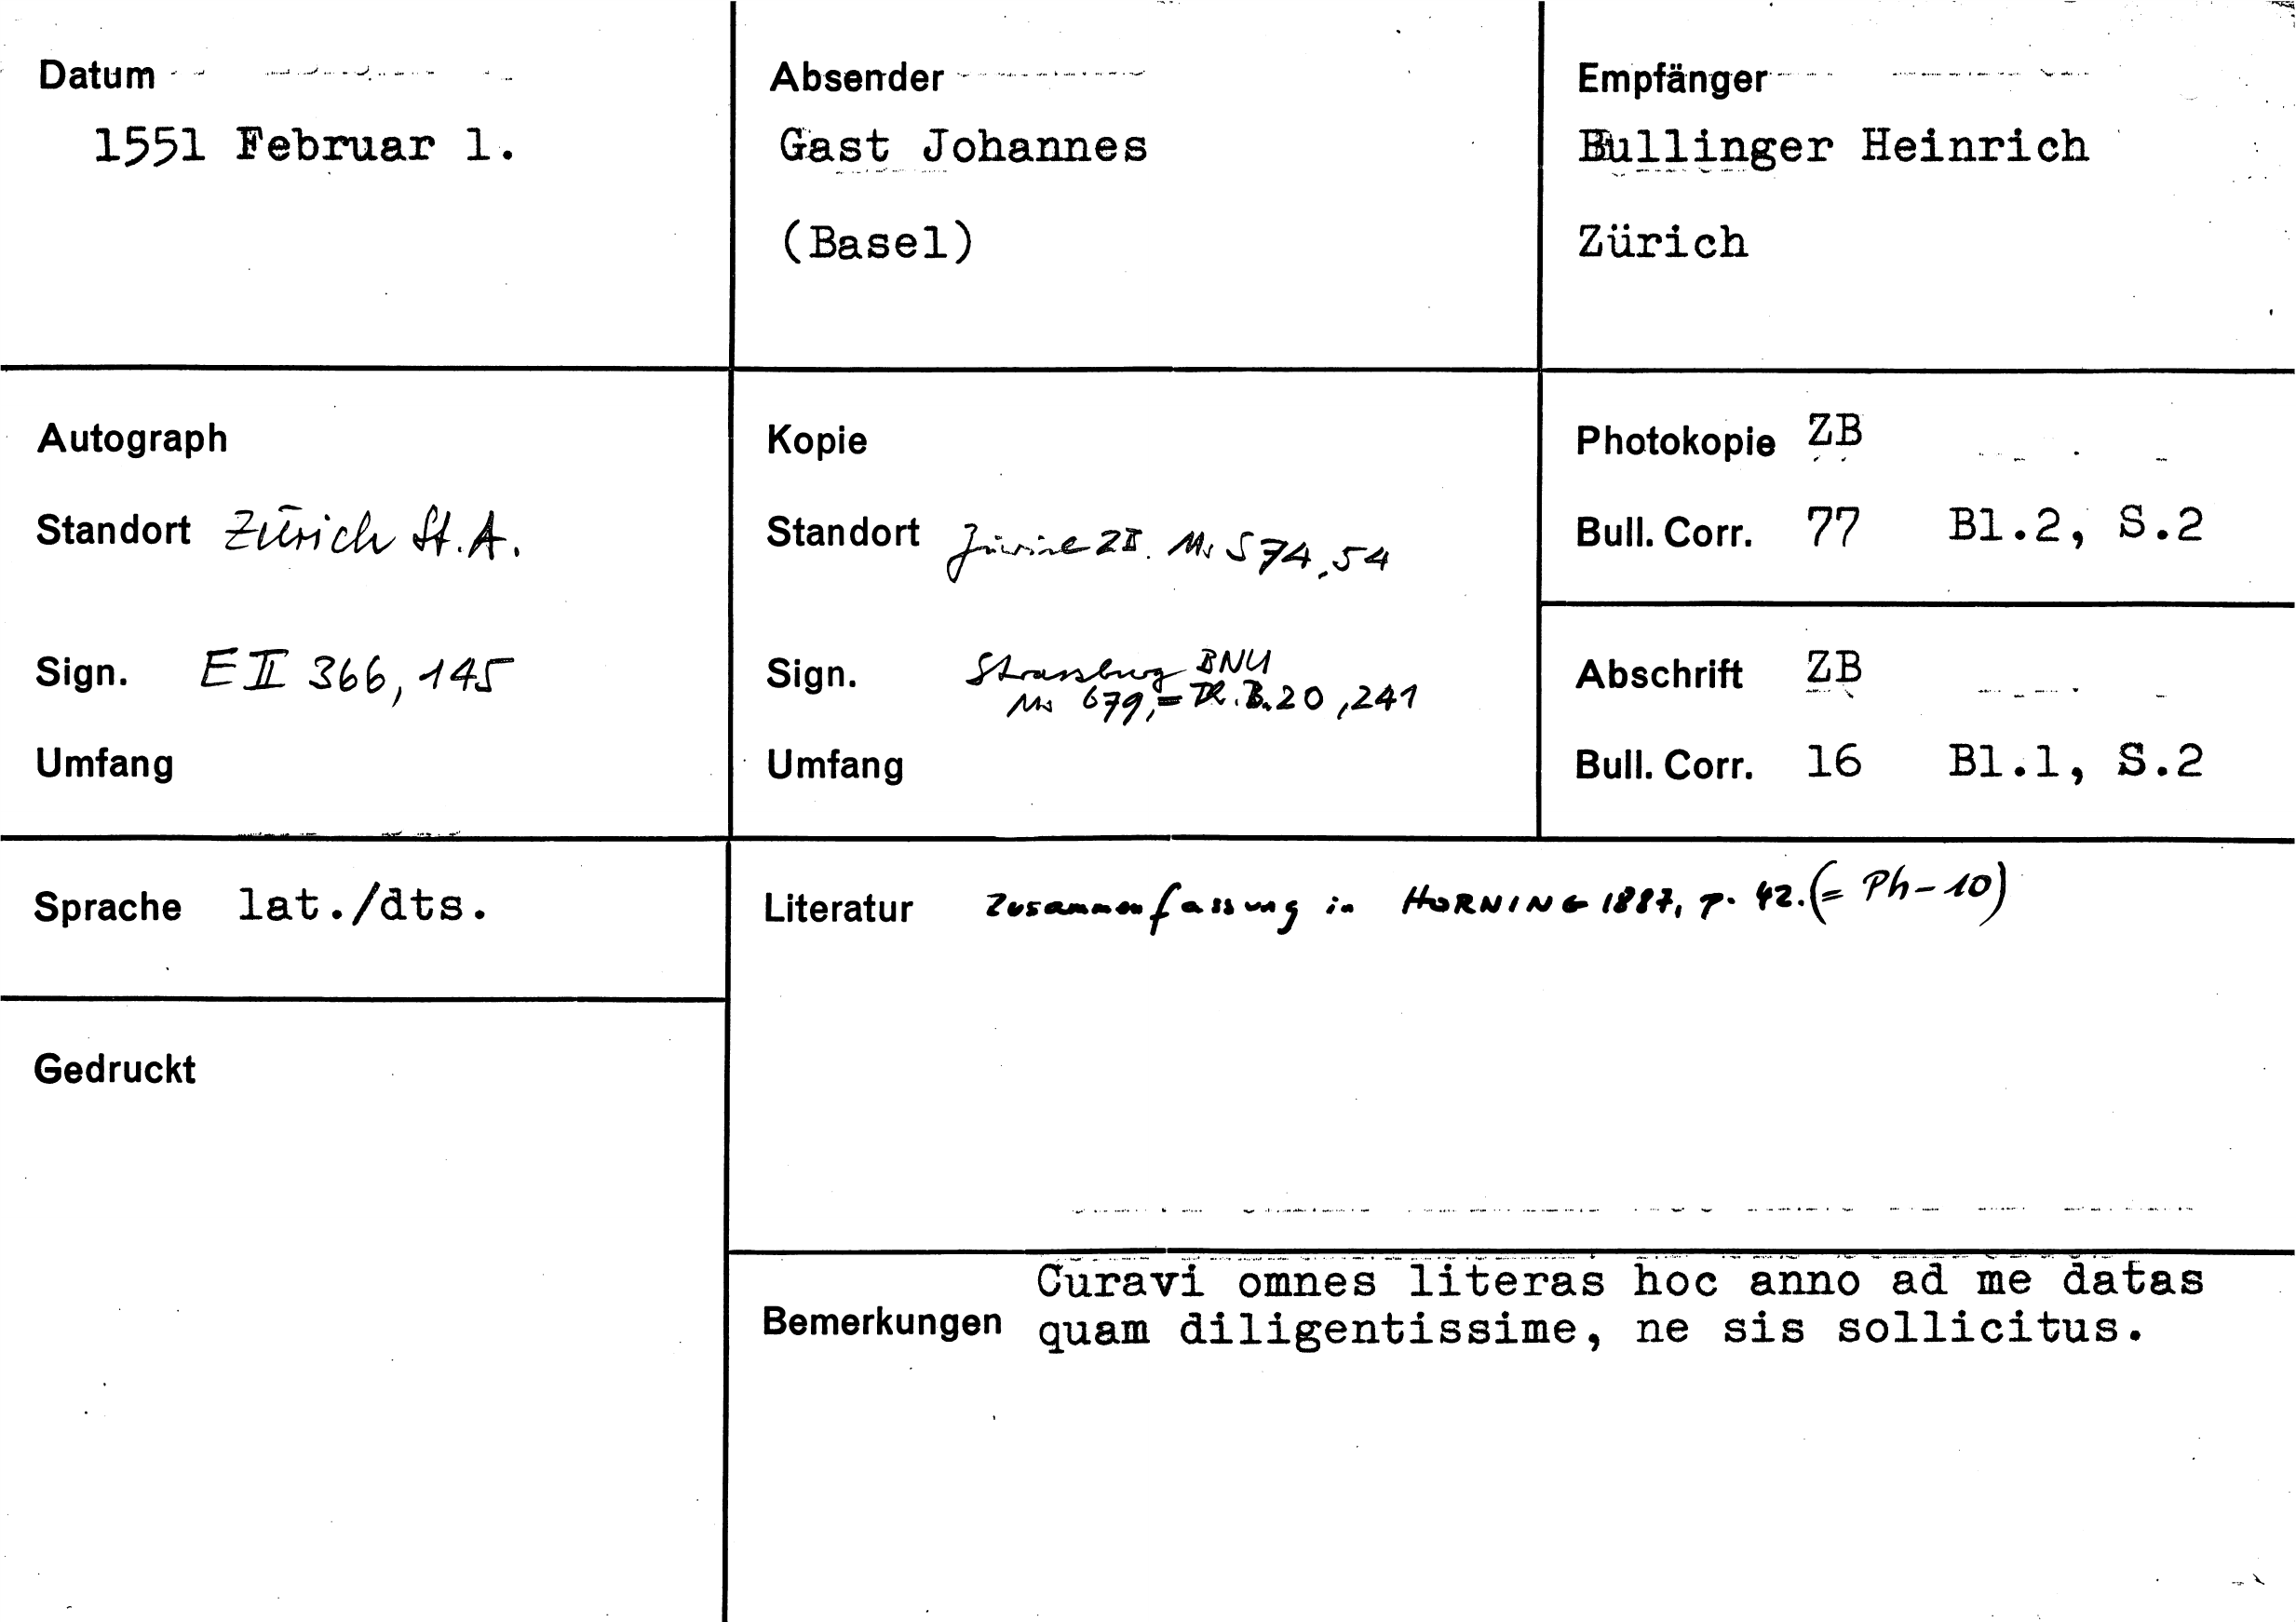 Datum
1551 Februar 1.
Absender
Gast Johannes
(Basel)
Empfänger
Bullinger Heinrich
Zürich
Autograph
Standort Zürich St.A.
Sign. E II 366, 145
Umfang
Kopie
Standort Zürich ZB. Ms S 74, 54
Sign. Strassburg BNU
Ms 679, = Th.B.20, 241
Umfang
Photokopie ZB
Bull. Corr. 77 Bl.2, S.2
Abschrift ZB
Bull. Corr. 16 Bl.1, S.2
Sprache lat./dts.
Gedruckt
Literatur Zusammenfassung in HORNING 1887, p. 42. (= Ph-10)
Bemerkungen
Curavi omnes literas hoc anno ad me datas
quam diligentissime, ne sis sollicitus.